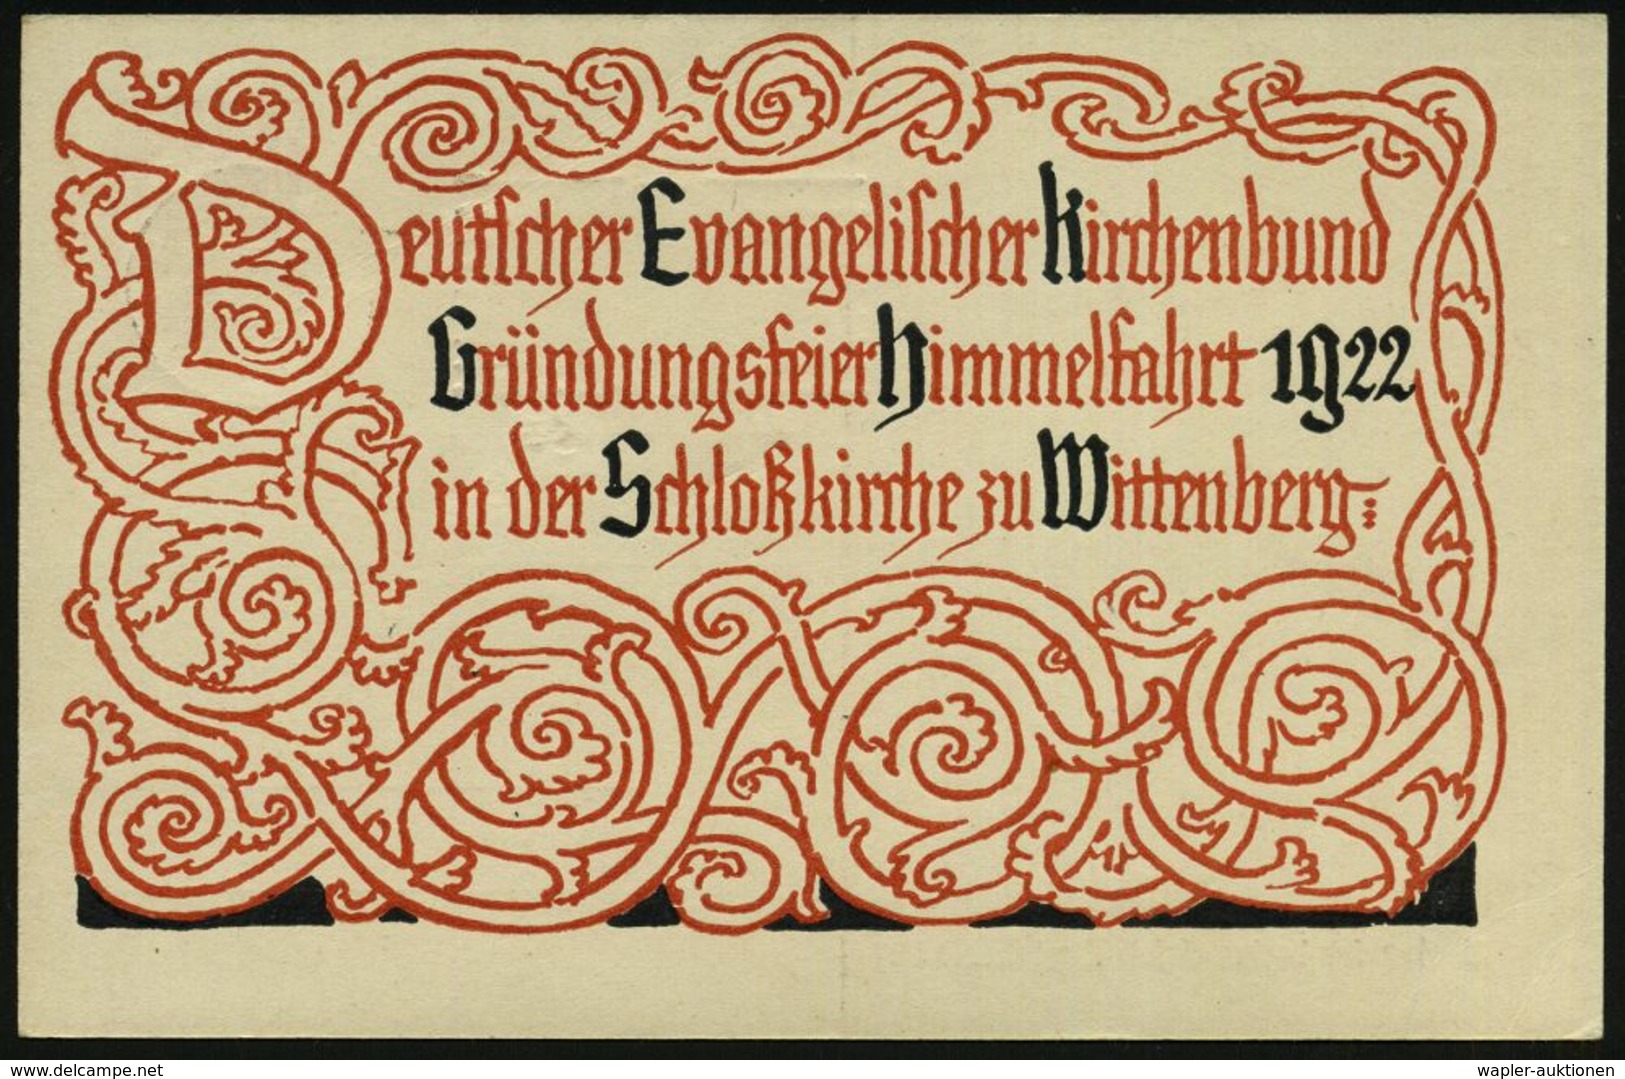 Deutſcher Evangeliſcher Kirchenbund
Gründungsfeier Himmelfahrt 1922
in der Schloßkirche zu Wittenberg:
www.delcampe.net
wapler-auktionen